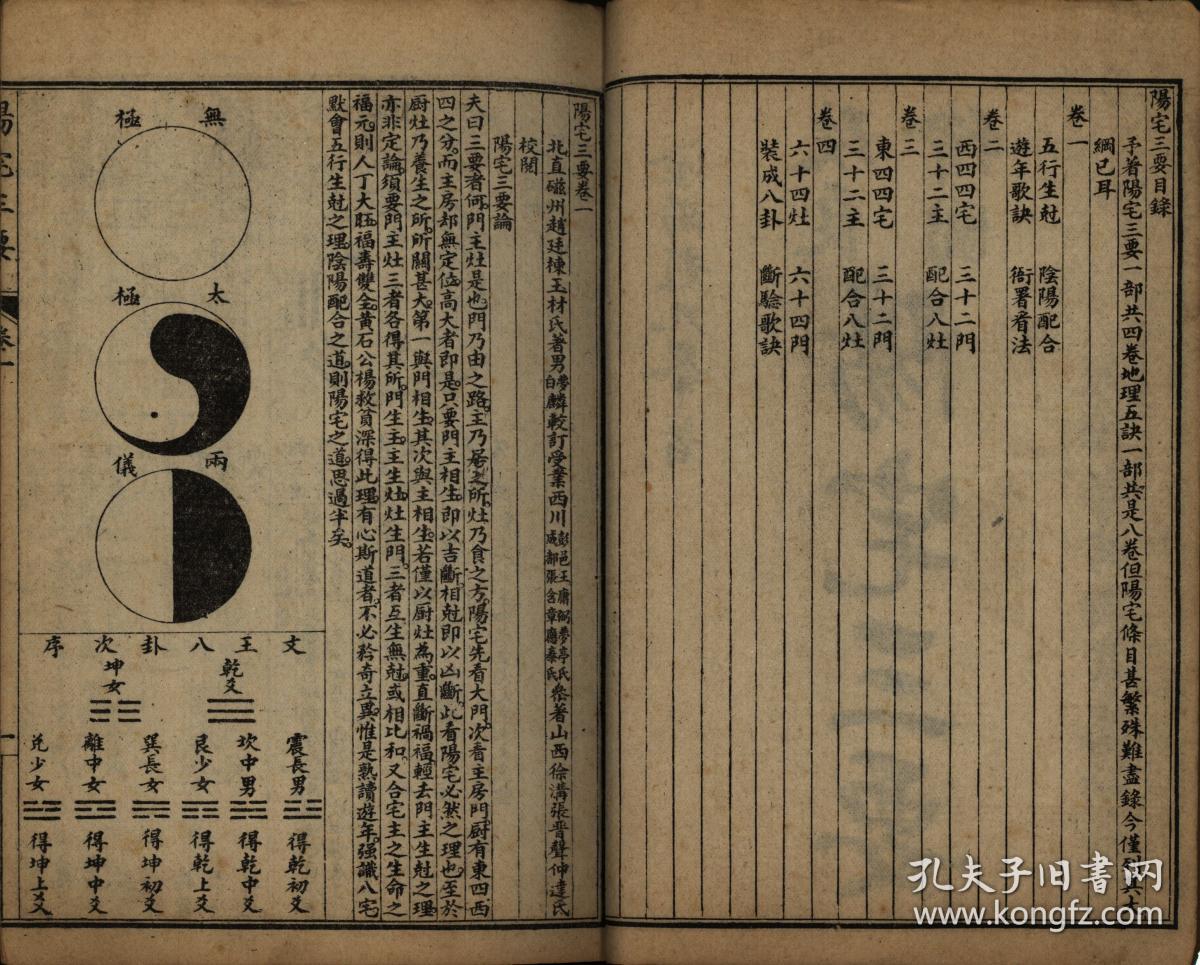 陽宅三要目錄
予著陽宅三要一部共四卷地理五訣一部共是八卷但陽宅條目甚繁殊難盡錄今僅列其大
綱已耳
卷一
五行生尅 陰陽配合
遊年歌訣 衙署看法
卷二
西四四宅 三十二門
三十二主 配合八灶
卷三
東四四宅 三十二門
三十二主 配合八灶
卷四
六十四灶 六十四門
裝成八卦 斷驗歌訣
陽宅三要卷一
北直磁州趙廷棟玉材氏著男夢白麟較訂受業西川彭邑王庸弼夢亭氏成都張含章應泰氏叅著山西徐溝張晋聲仲達氏
校閱
陽宅三要論
夫曰三要者何門主灶是也門乃由之路主乃居之所灶乃食之方陽宅先看大門次看主房門厨有東四西
四之分而主房却無定位高大者即是只要門主相生即以吉斷相尅即以凶斷此看陽宅必然之理也至於
厨灶乃養生之所所關甚大第一與門相生其次與主相生若僅以厨灶為重直斷禍福輕去門主生尅之理
亦非定論須要門主灶三者各得其所門生主主生灶灶生門三者互生無尅或相比和又合宅主之生命之
福元則人丁大旺福壽雙全黃石公楊救貧深得此理有心斯道者不必矜奇立異惟是熟讀遊年強識八宅
默會五行生尅之理陰陽配合之道則陽宅之道思過半矣
無極
太極
兩儀
文王八卦次序
乾爻
坤女
震長男 得乾初爻
坎中男 得乾中爻
艮少女 得乾上爻
巽長女 得坤初爻
離中女 得坤中爻
兌少女 得坤上爻
陽宅三要
卷一
一
孔夫子旧书网
www.kongfz.com